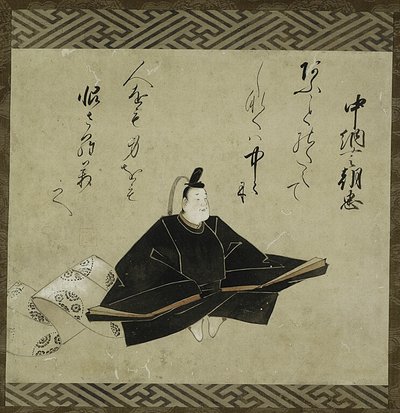 中納言朝忠
あふことのたえて
しなくは中〱に
人をも身をも
恨さらまし